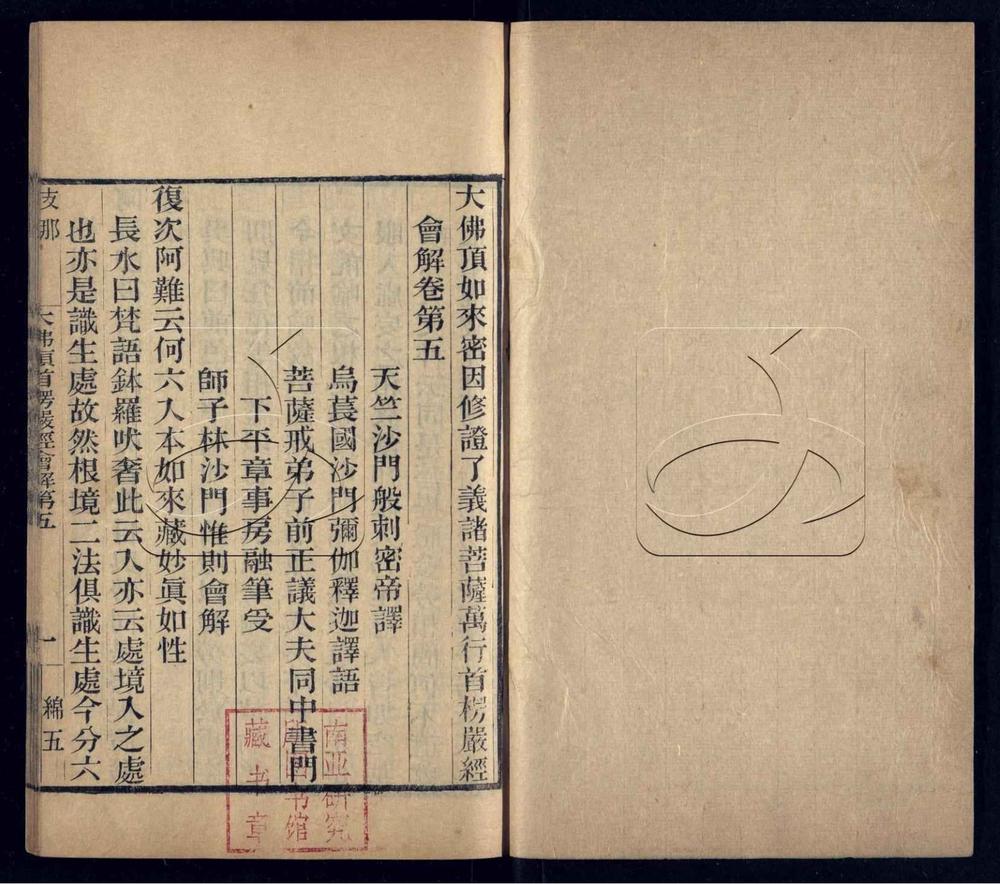 大佛頂如來密因修證了義諸菩薩萬行首楞嚴經
會解卷第五
天竺沙門般剌密帝譯
烏萇國沙門彌伽釋迦譯語
菩薩戒弟子前正議大夫同中書門
下平章事房融筆受
師子林沙門惟則會解
復次阿難云何六入本如來藏妙眞如性
長水曰梵語鉢羅吠奢此云入亦云處境入之處
也亦是識生處故然根境二法俱識生處今分六
支那
大佛頂首楞嚴經會解第五
一
綿五
南亚研究
所图书馆
藏书章